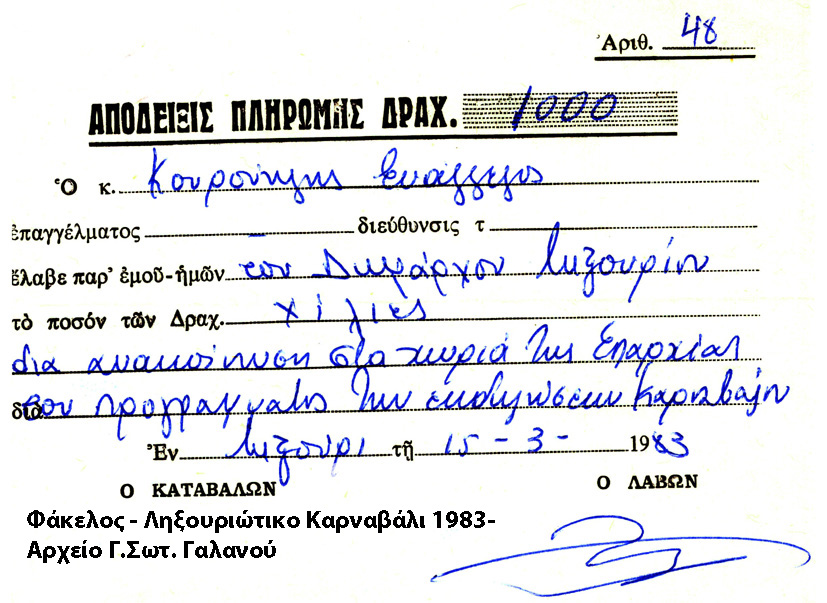 Ἀριθ. 48
ΑΠΟΔΕΙΞΙΣ ΠΛΗΡΩΜΗΣ ΔΡΑΧ. 1000
Ὁ κ. Κουρούκλης Ευάγγελος
ἐπαγγέλματος — διεύθυνσις τ
ἔλαβε παρ' ἐμοῦ-ἡμῶν του Δημάρχου Ληξουρίου
τὸ ποσόν τῶν Δραχ. χίλιες
δια ανακοίνωση στα χωριά της Επαρχίας
διὰ του προγράμματος των εκδηλώσεων Καρναβάλη
Ἐν Ληξούρι τῇ 15 - 3 - 1983
Ο ΚΑΤΑΒΑΛΩΝ Ο ΛΑΒΩΝ
Φάκελος - Ληξουριώτικο Καρναβάλι 1983-
Αρχείο Γ.Σωτ. Γαλανού